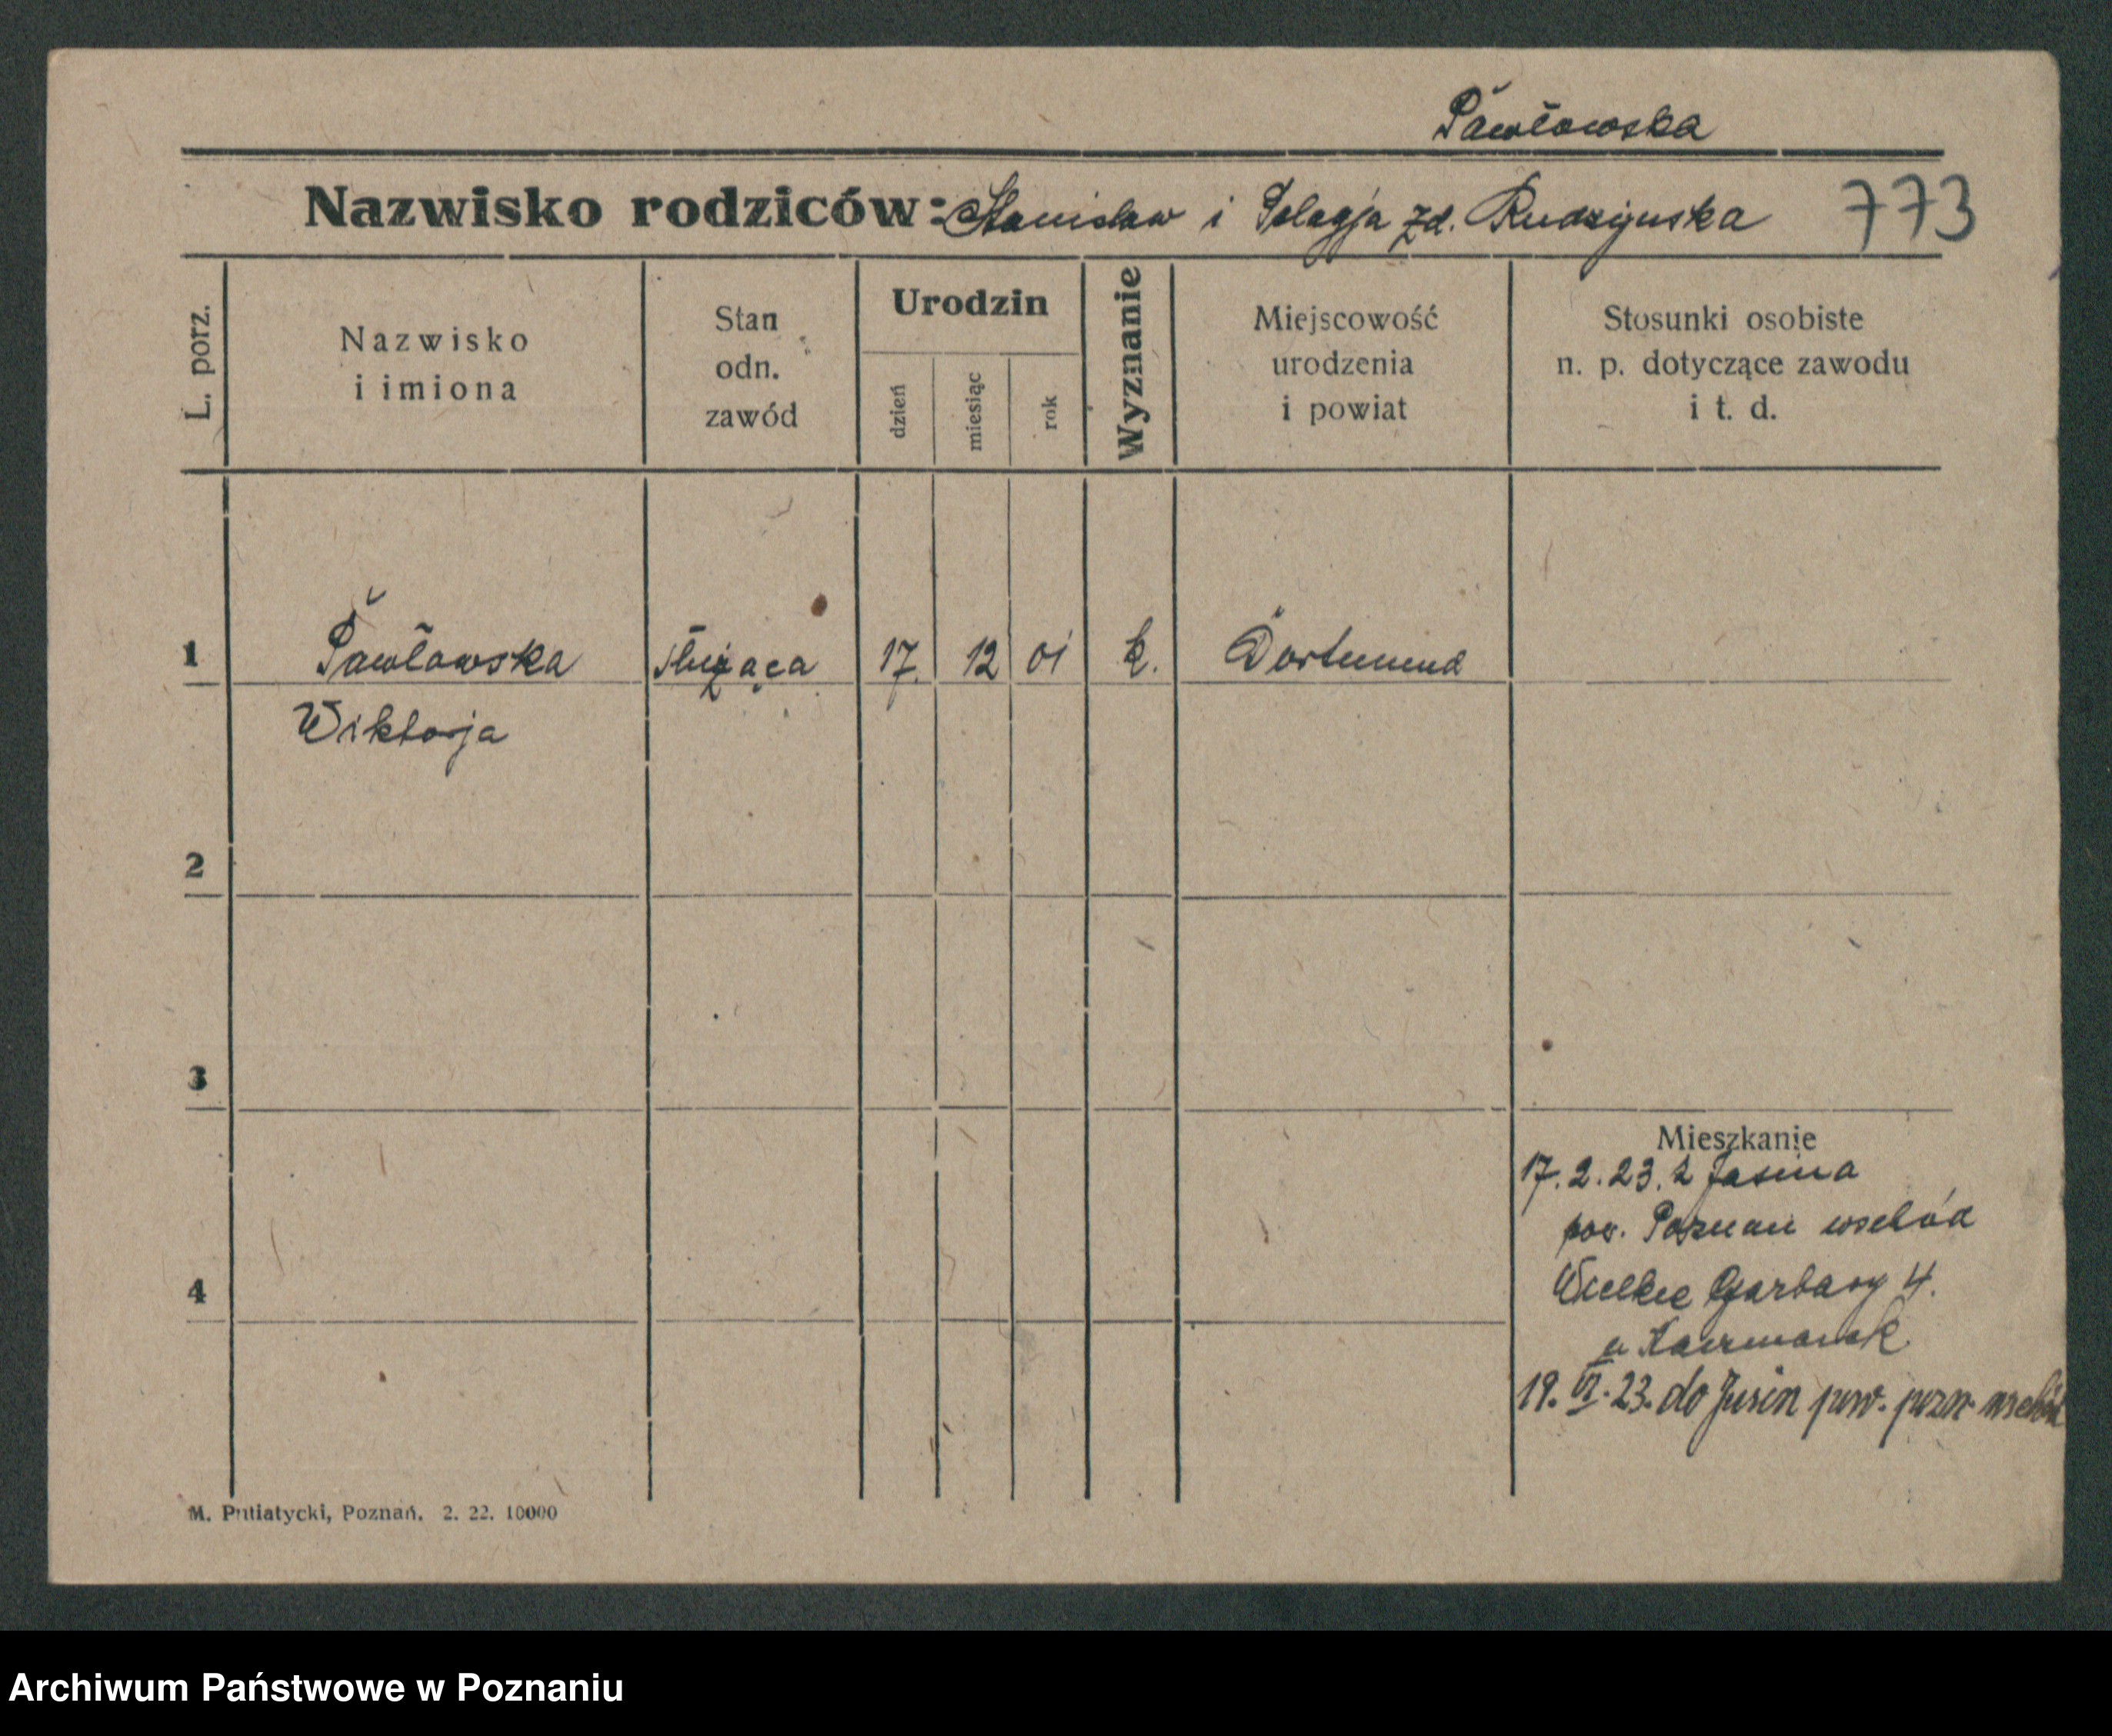 Pawłowska
Nazwisko rodziców: Stanisław i Pelagja zd. Rudzyńska 773
L. porz.
Nazwisko i imiona
Stan odn. zawód
Urodzin
dzień miesiąc rok
Wyznanie
Miejscowość urodzenia i powiat
Stosunki osobiste n. p. dotyczące zawodu i t. d.
1 Pawłowska służąca 17. 12 01 k. Dortmund
Wiktorja
2
3
Mieszkanie
17. 2. 23. z Jasina
pow. Poznań wschód
4 Wielkie Garbary 4.
u Kaczmarek
19. VI. 23. do Jasin pow. pozn. wschód
M. Putiatycki, Poznań. 2. 22. 10000
Archiwum Państwowe w Poznaniu